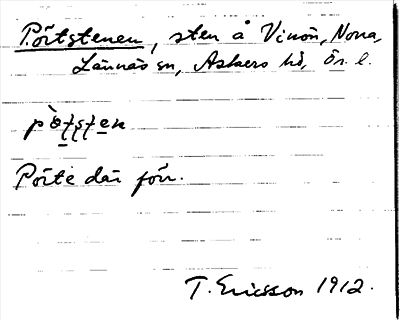 Pörtstenen, sten å Vinön, Nora,
Lännäs sn, Askers hd, Ör. l.
Pörte där förr.
T. Ericsson 1912.